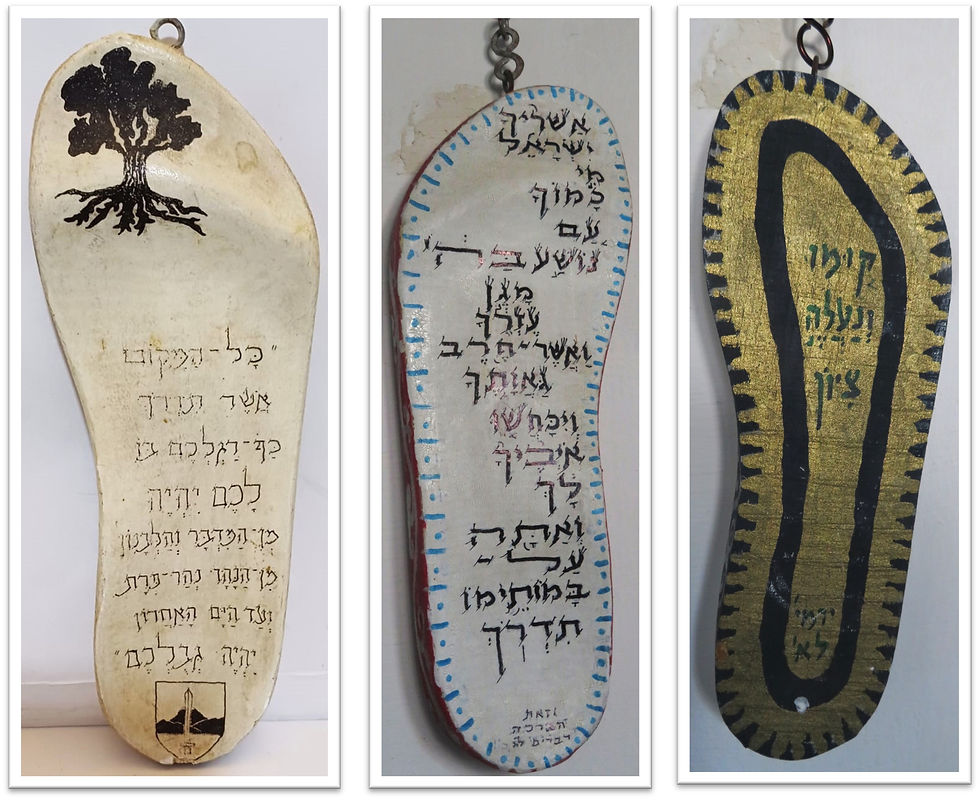 "כָּל-הַמָּקוֹם
אֲשֶׁר תִּדְרֹךְ
כַּף-רַגְלְכֶם בּוֹ
לָכֶם יִהְיֶה
מִן-הַמִּדְבָּר וְהַלְּבָנוֹן
מִן-הַנָּהָר נְהַר-פְּרָת
וְעַד הַיָּם הָאַחֲרוֹן
יִהְיֶה גְּבֻלְכֶם"
אַשְׁרֶיךָ
יִשְׂרָאֵל
מִי
כָּמוֹךָ
עַם
נוֹשַׁע בַּה'
מָגֵן
עֶזְרֶךָ
וַאֲשֶׁר-חֶרֶב
גַּאֲוָתֶךָ
וְיִכָּחֲשׁוּ
אֹיְבֶיךָ
לָךְ
וְאַתָּה
עַל-
בָּמוֹתֵימוֹ
תִדְרֹךְ
וזאת
הברכה
דברים לג
קוּמוּ
וְנַעֲלֶה
צִיּוֹן
ירמי'
לא'